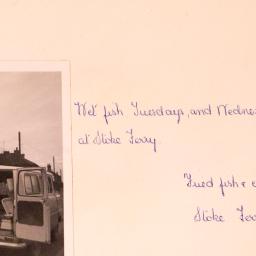 Wet fish Tuesdays, and Wednes
at Stoke Ferry
Fried fish &
Stoke Ferry